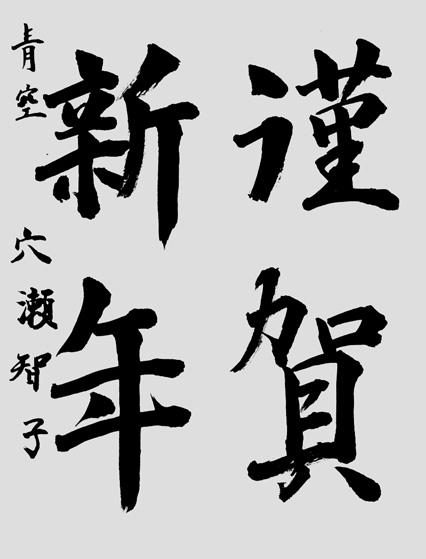 謹賀
新年
青空 穴瀬智子